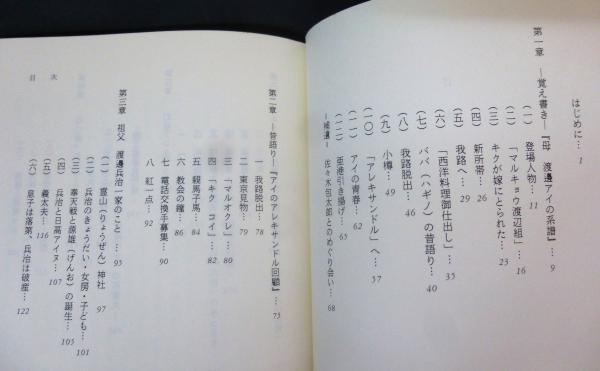 はじめに… 1
第一章 ―覚え書き―『母 渡邊アイの系譜』… 9
(一) 登場人物… 11
(二) 「マルキョウ渡辺組」… 16
(三) キクが嫁にとられた… 23
(四) 新所帯… 26
(五) 我路へ… 29
(六) 「西洋料理御仕出し」… 35
(七) ババ(ハギノ)の昔語り… 40
(八) 我路脱出… 46
(九) 小樽… 49
(一〇) 「アレキサンドル」へ… 57
(一一) アイの青春… 62
(一二) 亜港引き揚げ… 65
―補遺― 佐々木包太郎とのめぐり会い… 68
第二章 ―昔語り―『アイのアレキサンドル回顧』… 75
一 我路脱出… 78
二 東京見物… 79
三 「マルオクレ」… 80
四 「キク コイ」… 82
五 親馬子馬… 84
六 教会の鐘… 86
七 電話交換手募集… 90
八 紅一点… 92
第三章 祖父 渡邊兵治一家のこと… 95
(一) 霊山(りょうぜん)神社 97
(二) 兵治のきょうだい・女房・子ども… 101
(三) 奉天戦と源雄(げんお)の誕生… 105
(四) 兵治と日高アイヌ… 107
(五) 義太夫… 116
(六) 息子は落第、兵治は破産… 122
目 次